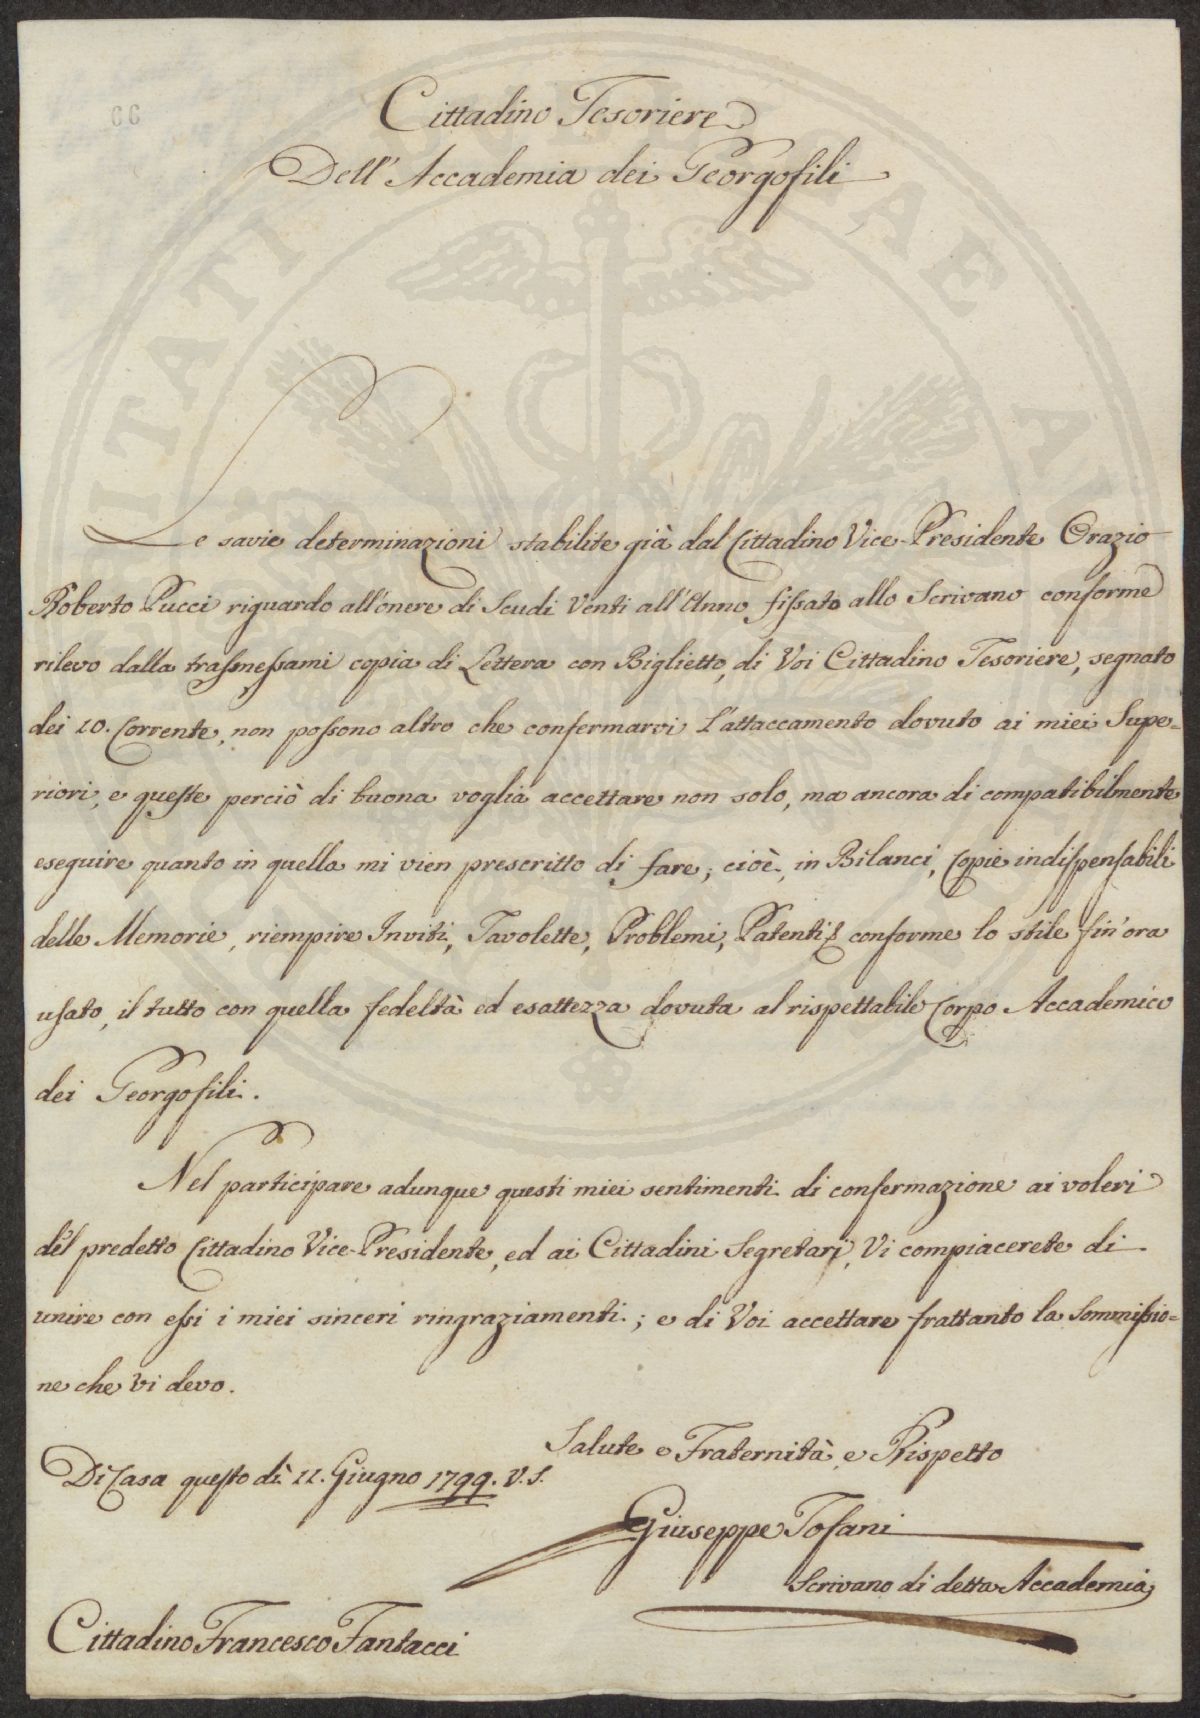 66
Cittadino Tesoriere
Dell' Accademia dei Georgofili
Le savie determinazioni stabilite già dal Cittadino Vice-Presidente Orazio
Roberto Pucci riguardo all'onere di Scudi Venti all'Anno fissato allo Scrivano conforme
rilevo dalla trasmessami copia di Lettera con Biglietto, di Voi Cittadino Tesoriere, segnato
dei 10. Corrente, non possono altro che confermarvi L'attaccamento dovuto ai miei Supe=
riori, e queste perciò di buona voglia accettare non solo, ma ancora di compatibilmente
eseguire quanto in quella mi vien prescritto di fare; cioè, in Bilanci, Copie indispensabili
delle Memorie, riempire Inviti, Tavolette, Problemi, Patenti conforme lo stile fin'ora
usato, il tutto con quella fedeltà ed esattezza dovuta al rispettabile Corpo Accademico
dei Georgofili.
Nel participare adunque questi miei sentimenti di confermazione ai voleri
del predetto Cittadino Vice-Presidente, ed ai Cittadini Segretarj, Vi compiacerete di
unire con essi i miei sinceri ringraziamenti; e di Voi accettare frattanto la Sommissio=
ne che Vi devo.
Salute e Fraternità, e Rispetto
Di Casa questo dì 11. Giugno 1799. V. S.
Giuseppe Tofani
Scrivano di detta Accademia
Cittadino Francesco Fantacci